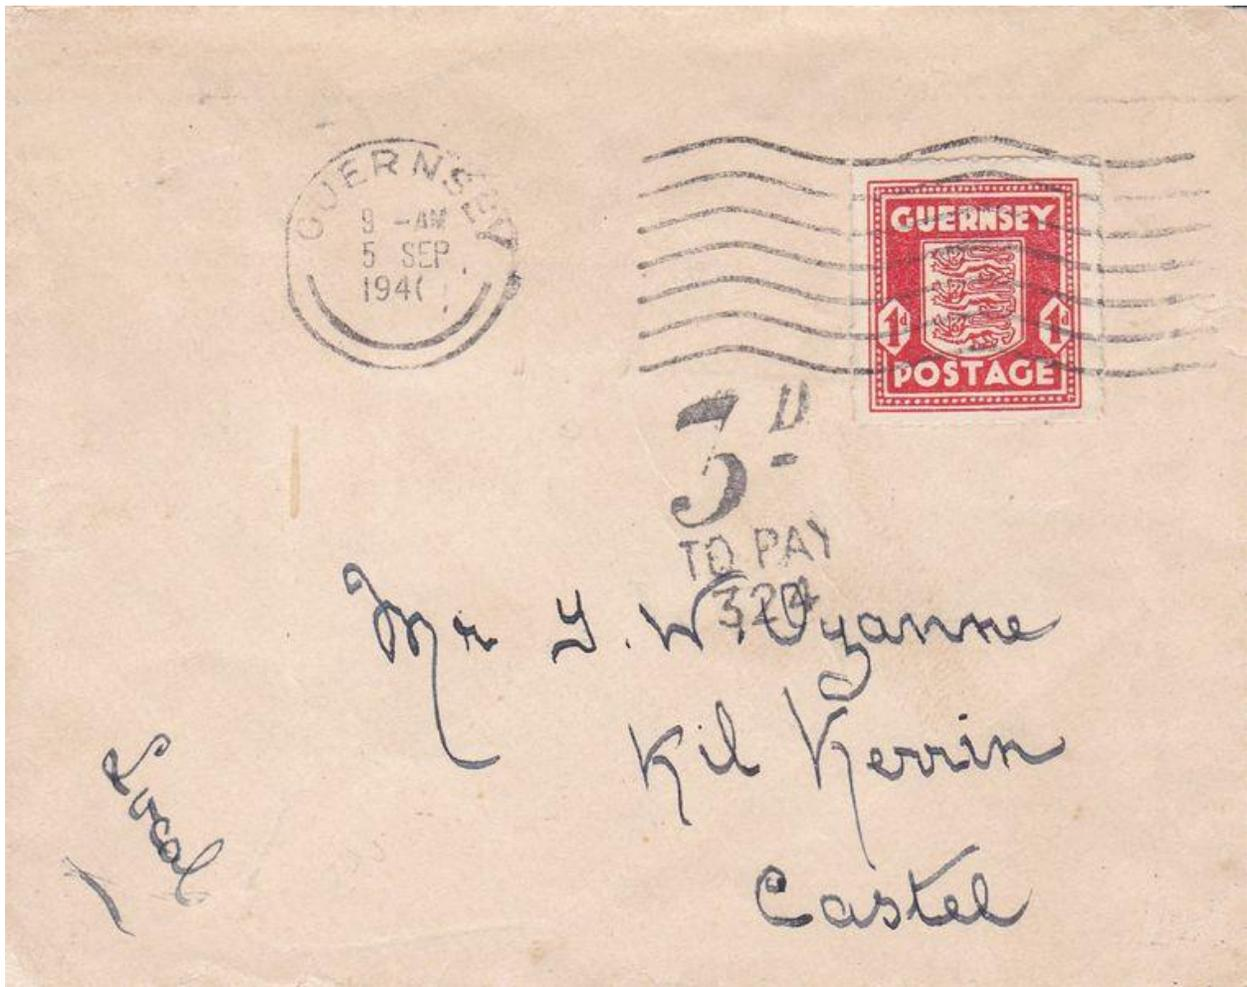 GUERNSEY
9 -AM
5 SEP
194
GUERNSEY
1d 1d
POSTAGE
3D
TO PAY
324
Mr Y. W. Ozanne
Kil Kerrin
Castel
Local